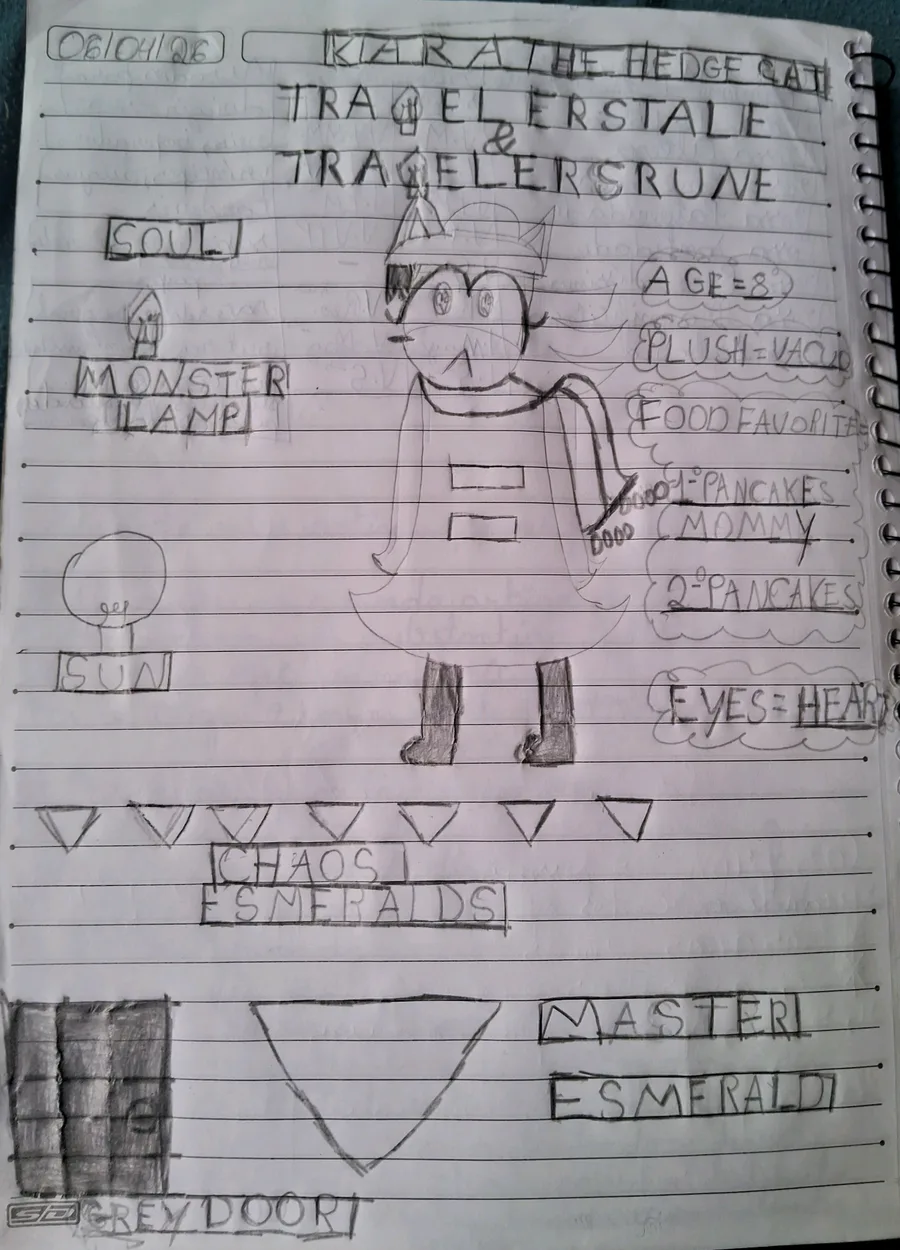 06/04/26
KIARA THE HEDGE CAT
TRAVELERSTALE
&
TRAVELERSRUNE
SOUL
AGE=8
PLUSH=VACUO
MONSTER
LAMP
FOOD FAVORITE=
1-º PANCAKES
MOMMY
2-º PANCAKES
SUN
EYES=HEART
CHAOS
ESMERALDS
MASTER
ESMERALD
GREY DOOR